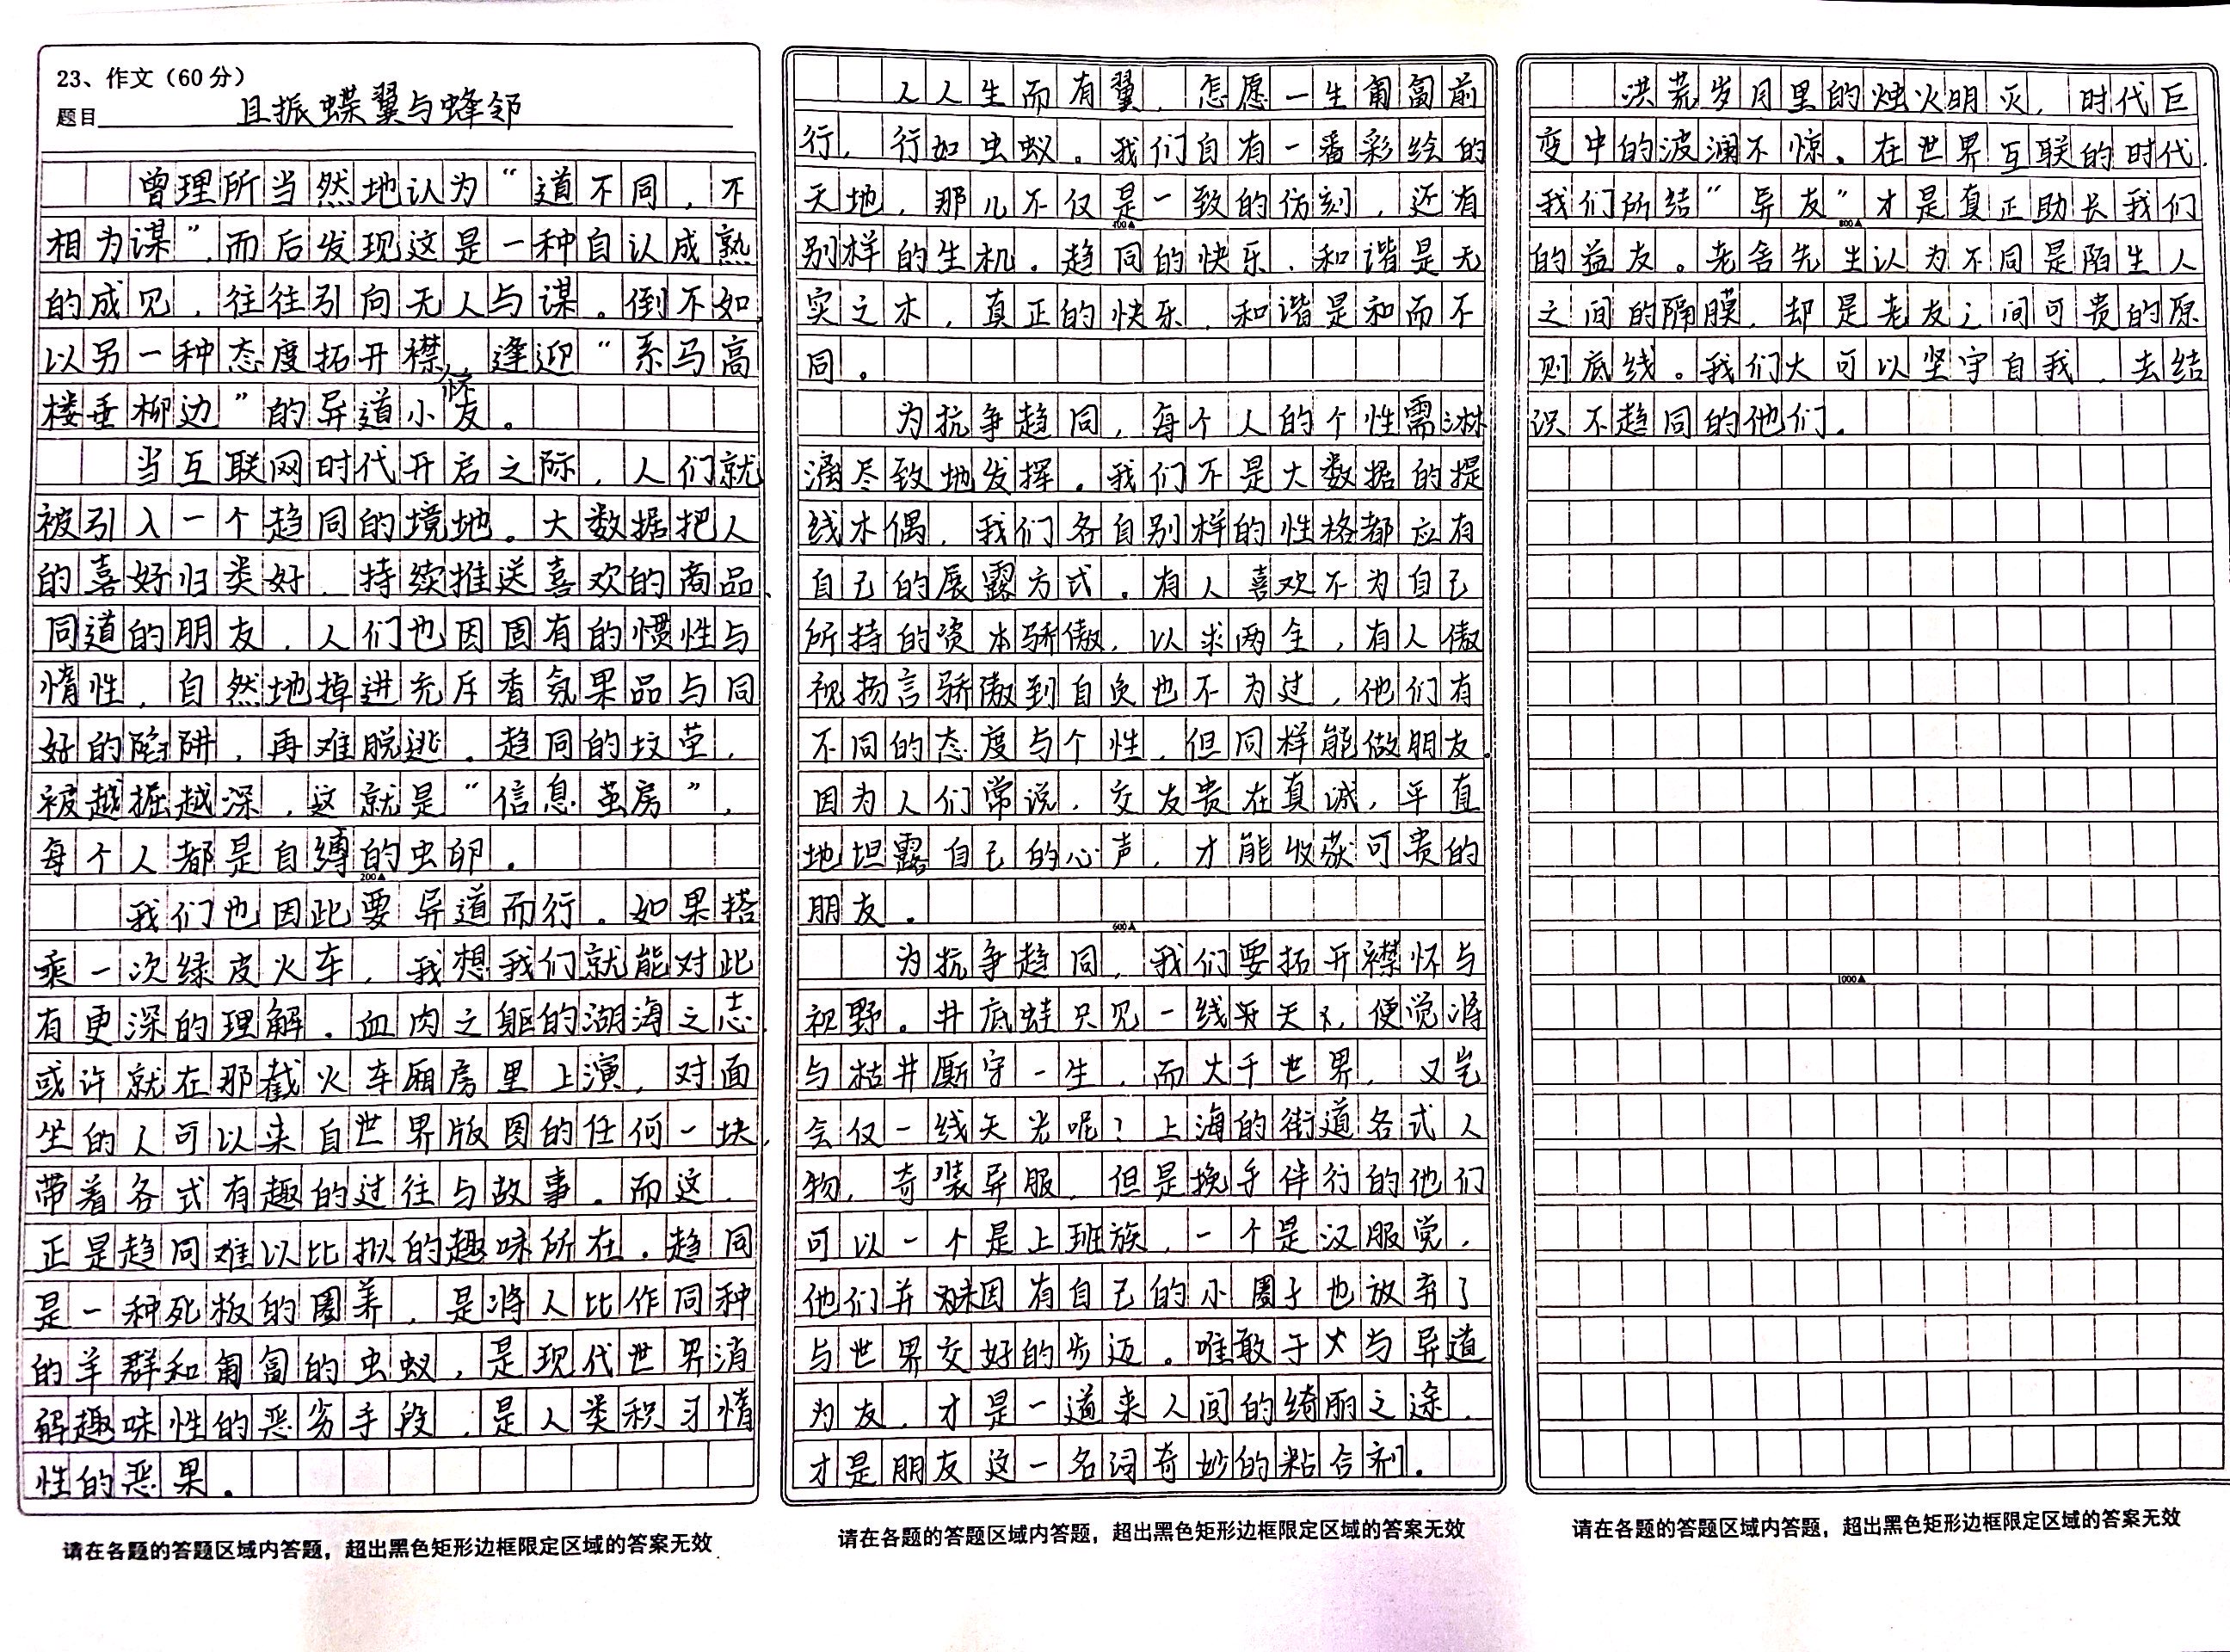 23、作文（60分）
题目 且振蝶翼与蜂邻
曾理所当然地认为“道不同，不
相为谋”，而后发现这是一种自认成熟
的成见，往往引向无人与谋。倒不如，
以另一种态度拓开襟怀，逢迎“系马高
楼垂柳边”的异道小友。
当互联网时代开启之际，人们就
被引入一个趋同的境地。大数据把人
的喜好归类好，持续推送喜欢的商品、
同道的朋友，人们也因固有的惯性与
惰性，自然地掉进充斥香氛果品与同
好的陷阱，再难脱逃。趋同的坟茔，
被越掘越深，这就是“信息茧房”，
每个人都是自缚的虫卵。
200▲
我们也因此要异道而行。如果搭
乘一次绿皮火车，我想我们就能对此
有更深的理解。血肉之躯的湖海之志，
或许就在那截火车厢房里上演，对面
坐的人可以来自世界版图的任何一块，
带着各式有趣的过往与故事。而这，
正是趋同难以比拟的趣味所在。趋同
是一种死板的圈养，是将人比作同种
的羊群和匍匐的虫蚁，是现代世界消
解趣味性的恶劣手段，是人类积习惰
性的恶果。
请在各题的答题区域内答题，超出黑色矩形边框限定区域的答案无效
人人生而有翼，怎愿一生匍匐前
行，行如虫蚁。我们自有一番彩绘的
天地，那儿不仅是一致的仿刻，还有
400▲
别样的生机。趋同的快乐、和谐是无
实之木，真正的快乐、和谐是和而不
同。
为抗争趋同，每个人的个性需淋
漓尽致地发挥。我们不是大数据的提
线木偶，我们各自别样的性格都应有
自己的展露方式。有人喜欢不为自己
所持的资本骄傲，以求两全，有人傲
视扬言骄傲到自负也不为过，他们有
不同的态度与个性，但同样能做朋友。
因为人们常说，交友贵在真诚，平直
地坦露自己的心声，才能收获可贵的
朋友。
600▲
为抗争趋同，我们要拓开襟怀与
视野。井底蛙只见一线天，便觉将
与枯井厮守一生，而大千世界，又岂
会仅一线天光呢？上海的街道各式人
物，奇装异服，但是挽手伴行的他们
可以一个是上班族，一个是汉服党，
他们并未因有自己的小圈子也放弃了
与世界交好的步迈。唯敢于与异道
为友，才是一道来人间的绮丽之途，
才是朋友这一名词奇妙的粘合剂。
请在各题的答题区域内答题，超出黑色矩形边框限定区域的答案无效
洪荒岁月里的烛火明灭，时代巨
变中的波澜不惊。在世界互联的时代，
我们所结“异友”才是真正助长我们
800▲
的益友。老舍先生认为不同是陌生人
之间的隔膜，却是老友之间可贵的原
则底线。我们大可以坚守自我，去结
识不趋同的他们。
1000▲
请在各题的答题区域内答题，超出黑色矩形边框限定区域的答案无效